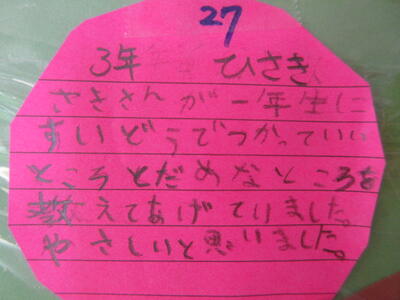 27
3年 ひさき
さきさんが一年生に
すいどうでつかっていい
ところとだめなところを
教えてあげていました。
やさしいと思いました。